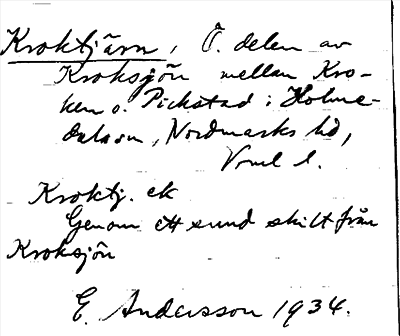 Kroktjärn, Ö. delen av
Kroksjön mellan Kro-
ken o. Pickstad i Holme-
dals sn, Nordmarks hd,
Vrml l.
Kroktj. ek
Genom ett sund skilt från
Kroksjön
E. Andersson 1934.